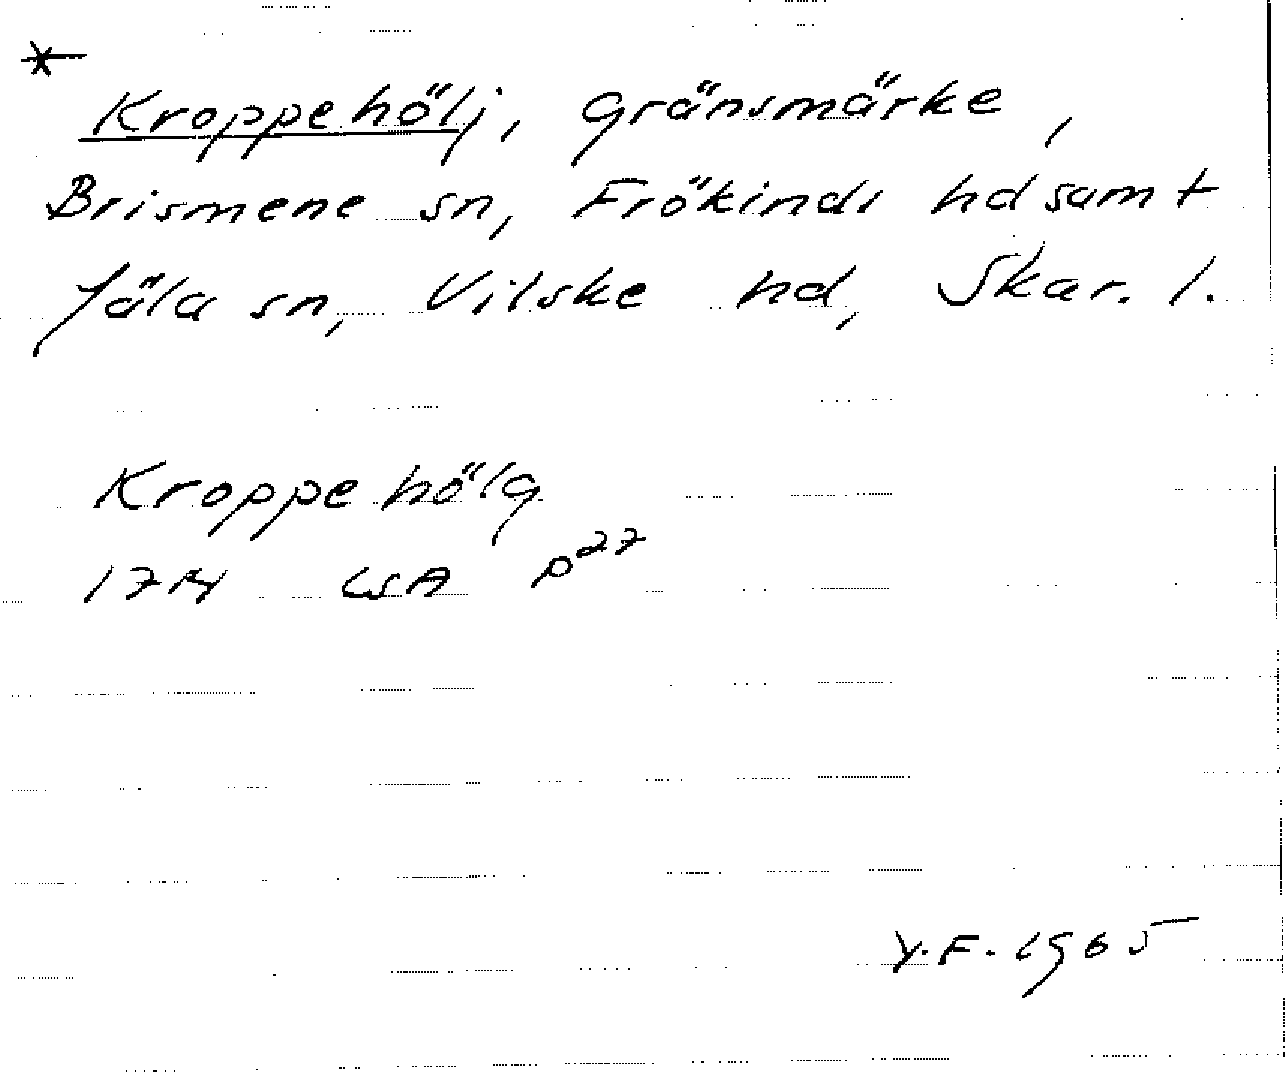 Kroppehölj, gränsmärke,
Brismene sn, Frökinds hd samt
Jäla sn, Vilske hd, Skar. l.
Kroppehölg
LSA P27
Y.F. 1965